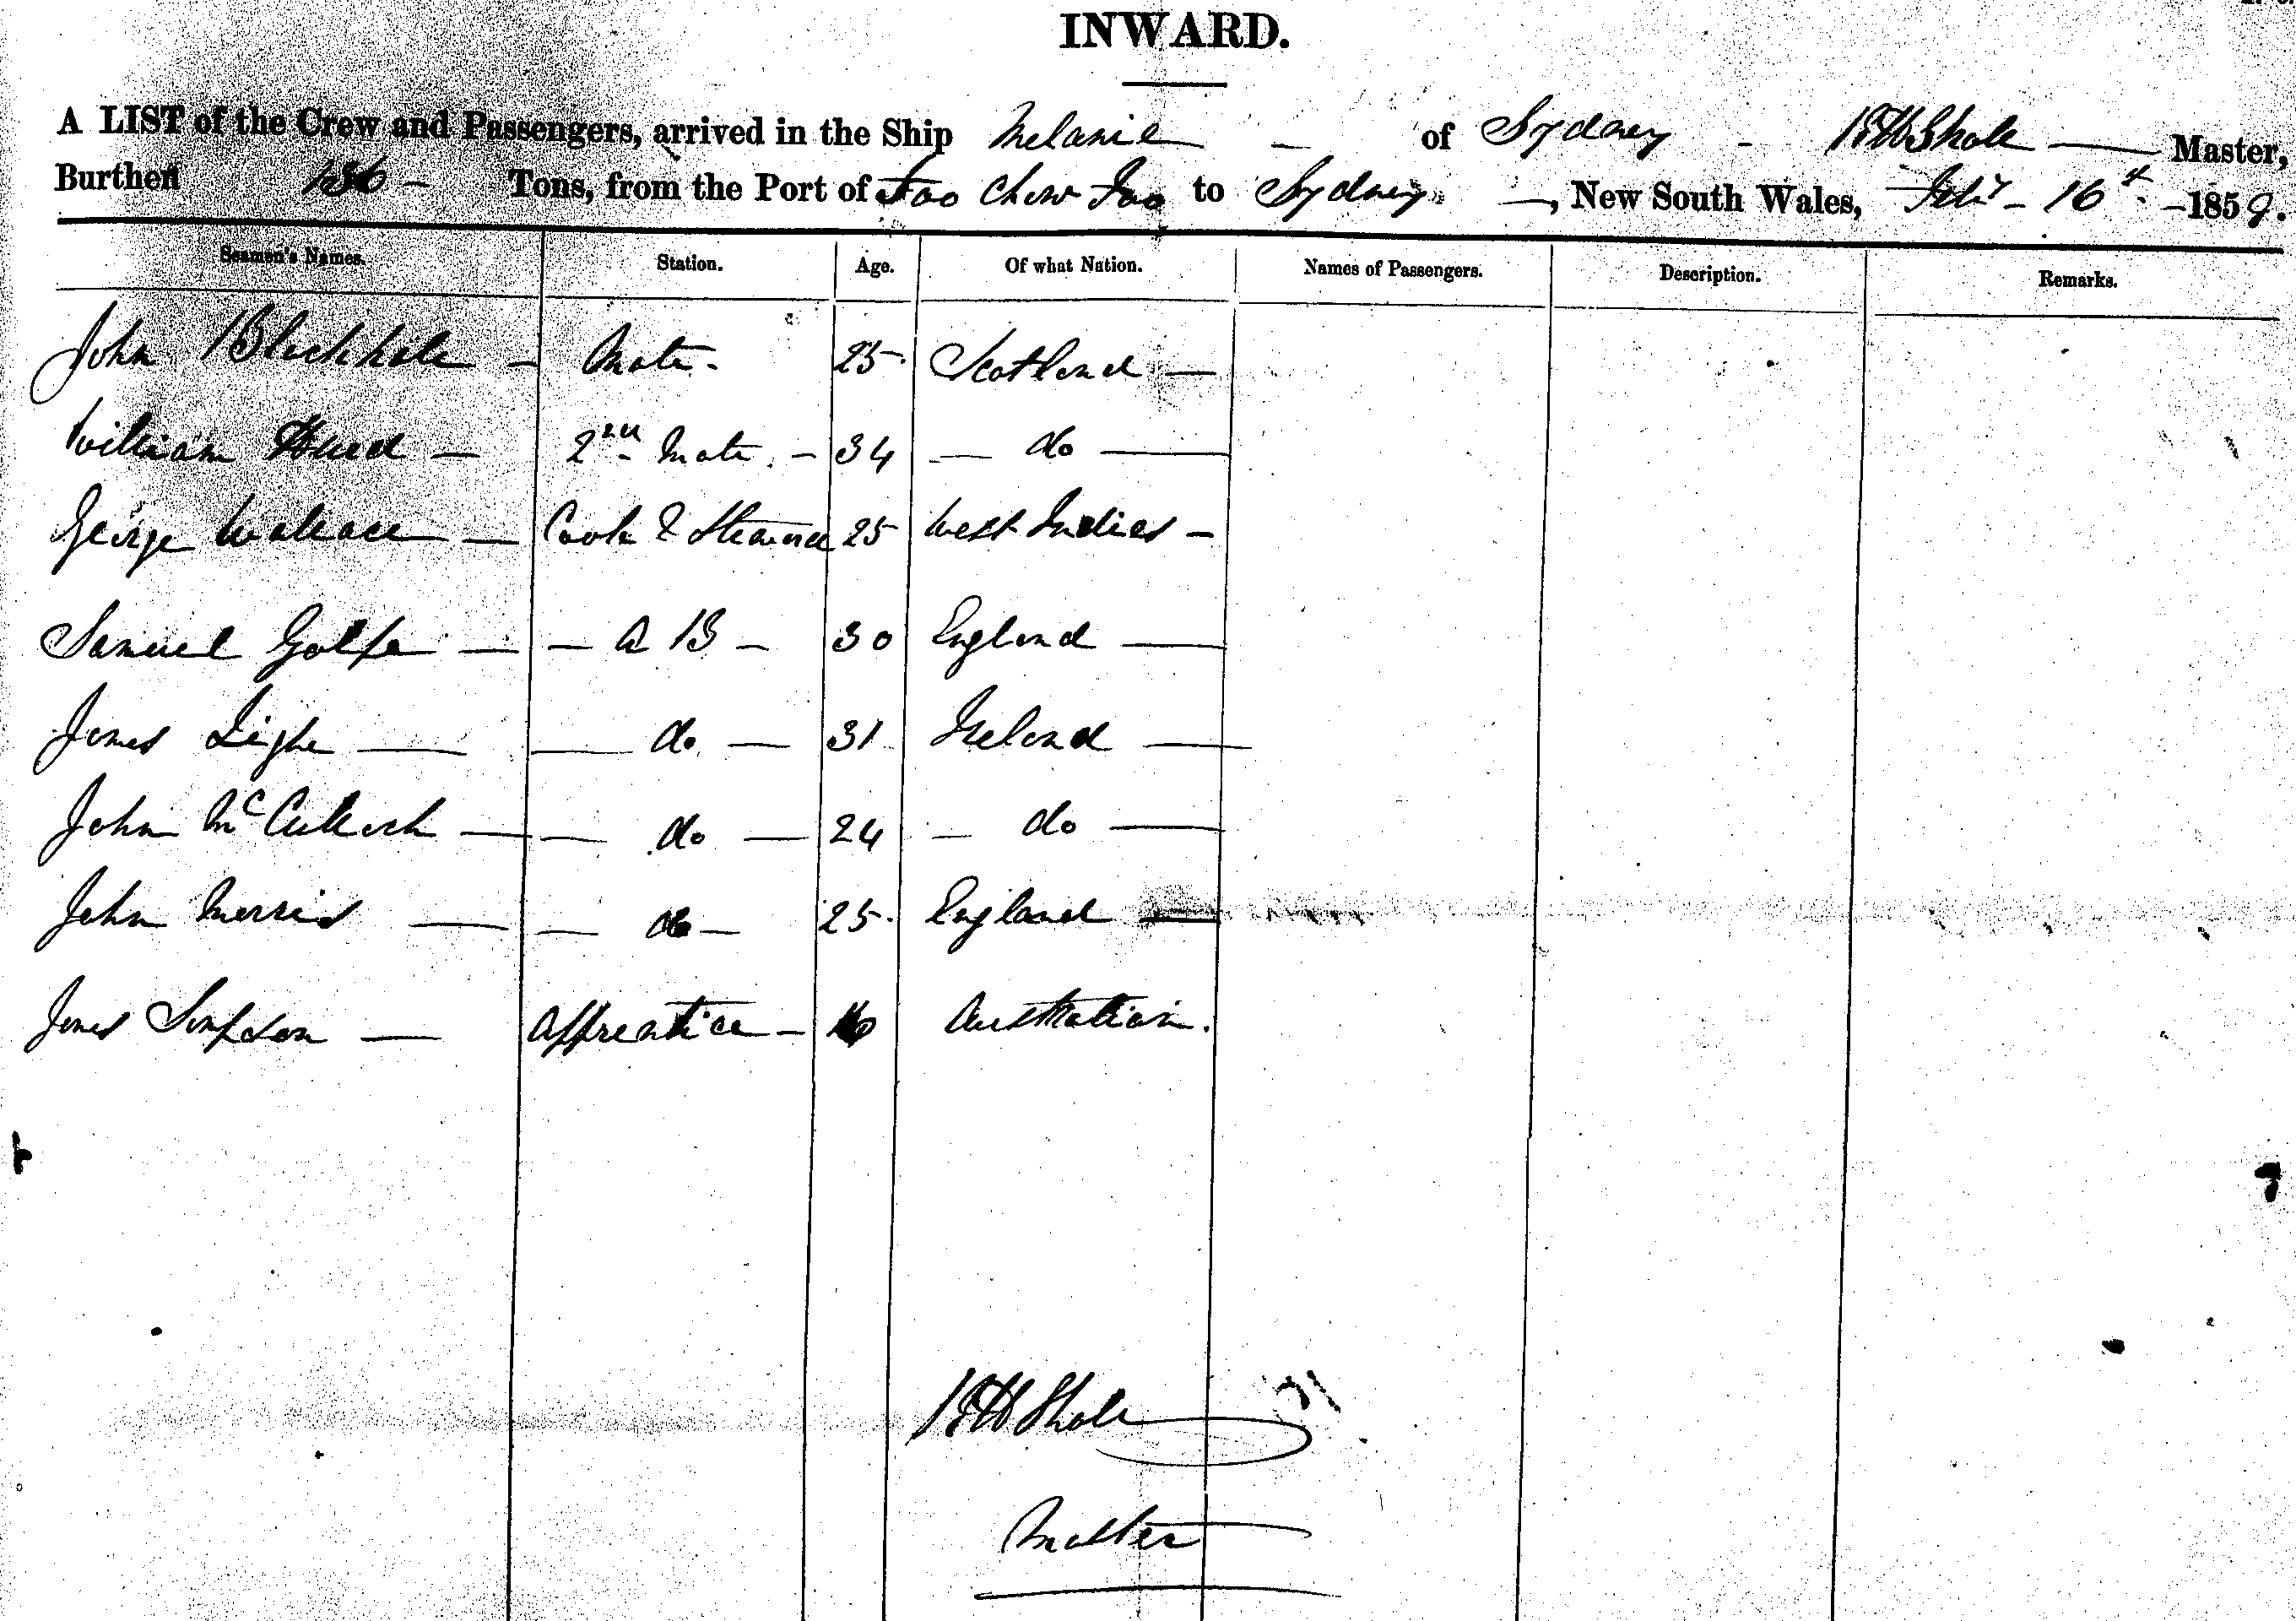 INWARD.
A LIST of the Crew and Passengers, arrived in the Ship Melanie - of Sydney - Master,
Burthen 136 - Tons, from the Port of Foo Chow Foo to Sydney —, New South Wales, Feby - 16th - 1859.
Seamen's Names. Station. Age. Of what Nation. Names of Passengers. Description. Remarks.
John - Mate - 25 Scotland —
William - 2nd Mate - 34 — do —
George Wallace — Cook & Steward 25 West Indies -
Samuel — - A B - 30 England —
James — — do — 31 Ireland —
John McCulloch — — do — 24 — do —
John Morris — — do — 25 England —
James Simpson — Apprentice - 16 Australian.
Master